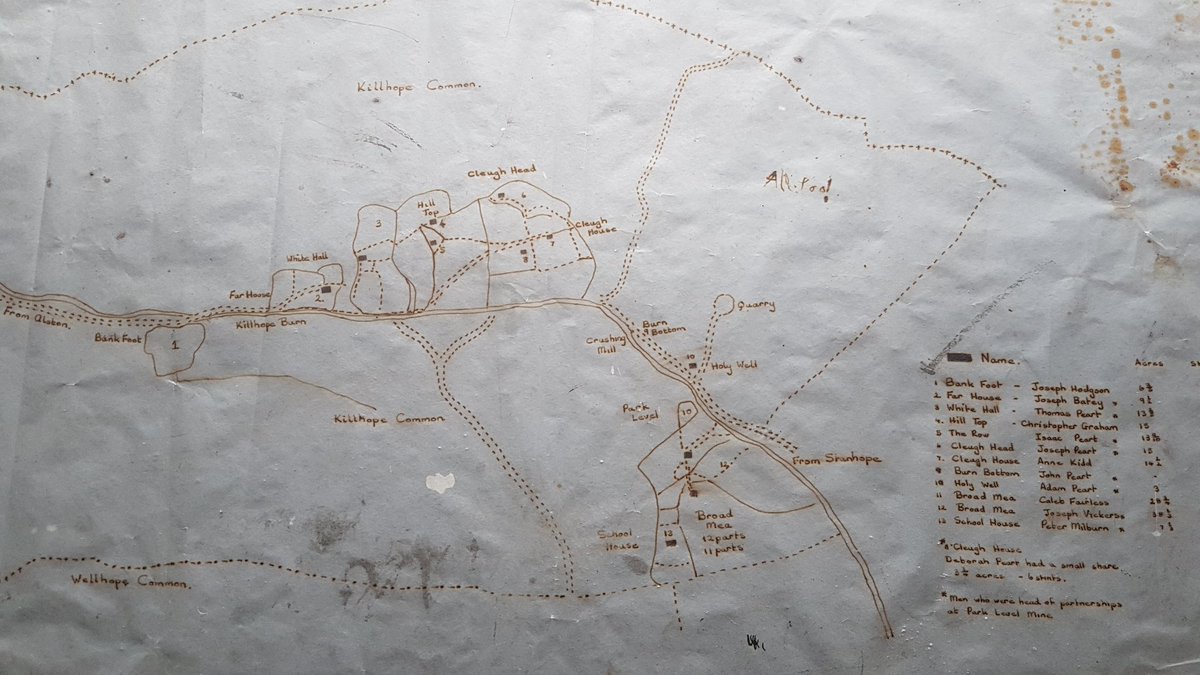 Killhope Common.
Cleugh Head
6
Hill
Top
4
3
5
Cleugh
House
7
8
White Hall
Far House
2
From Alston.
Killhope Burn
Bank Foot
1
Quarry
Burn
Bottom
9
Crushing
Mill
10
Holy Well
Park
Level
Killhope Common
From Stanhope
12
Broad
Mea
12 parts
11 parts
School
House
13
Wellhope Common.
Name.
Acres
1 Bank Foot - Joseph Hodgson
2 Far House - Joseph Batey "
3 White Hall - Thomas Peart "
4 Hill Top - Christopher Graham 15
5 The Row Isaac Peart "
6 Cleugh Head Joseph Peart " 15
7 Cleugh House Anne Kidd
9 Burn Bottom John Peart " -
10 Holy Well Adam Peart " 3
11 Broad Mea Caleb Fairless
12 Broad Mea Joseph Vickerss
13 School House Peter Milburn "
8 Cleugh House
Deborah Peart had a small share.
acres - 6 stints.
* Men who were head of partnerships
at Park Level Mine